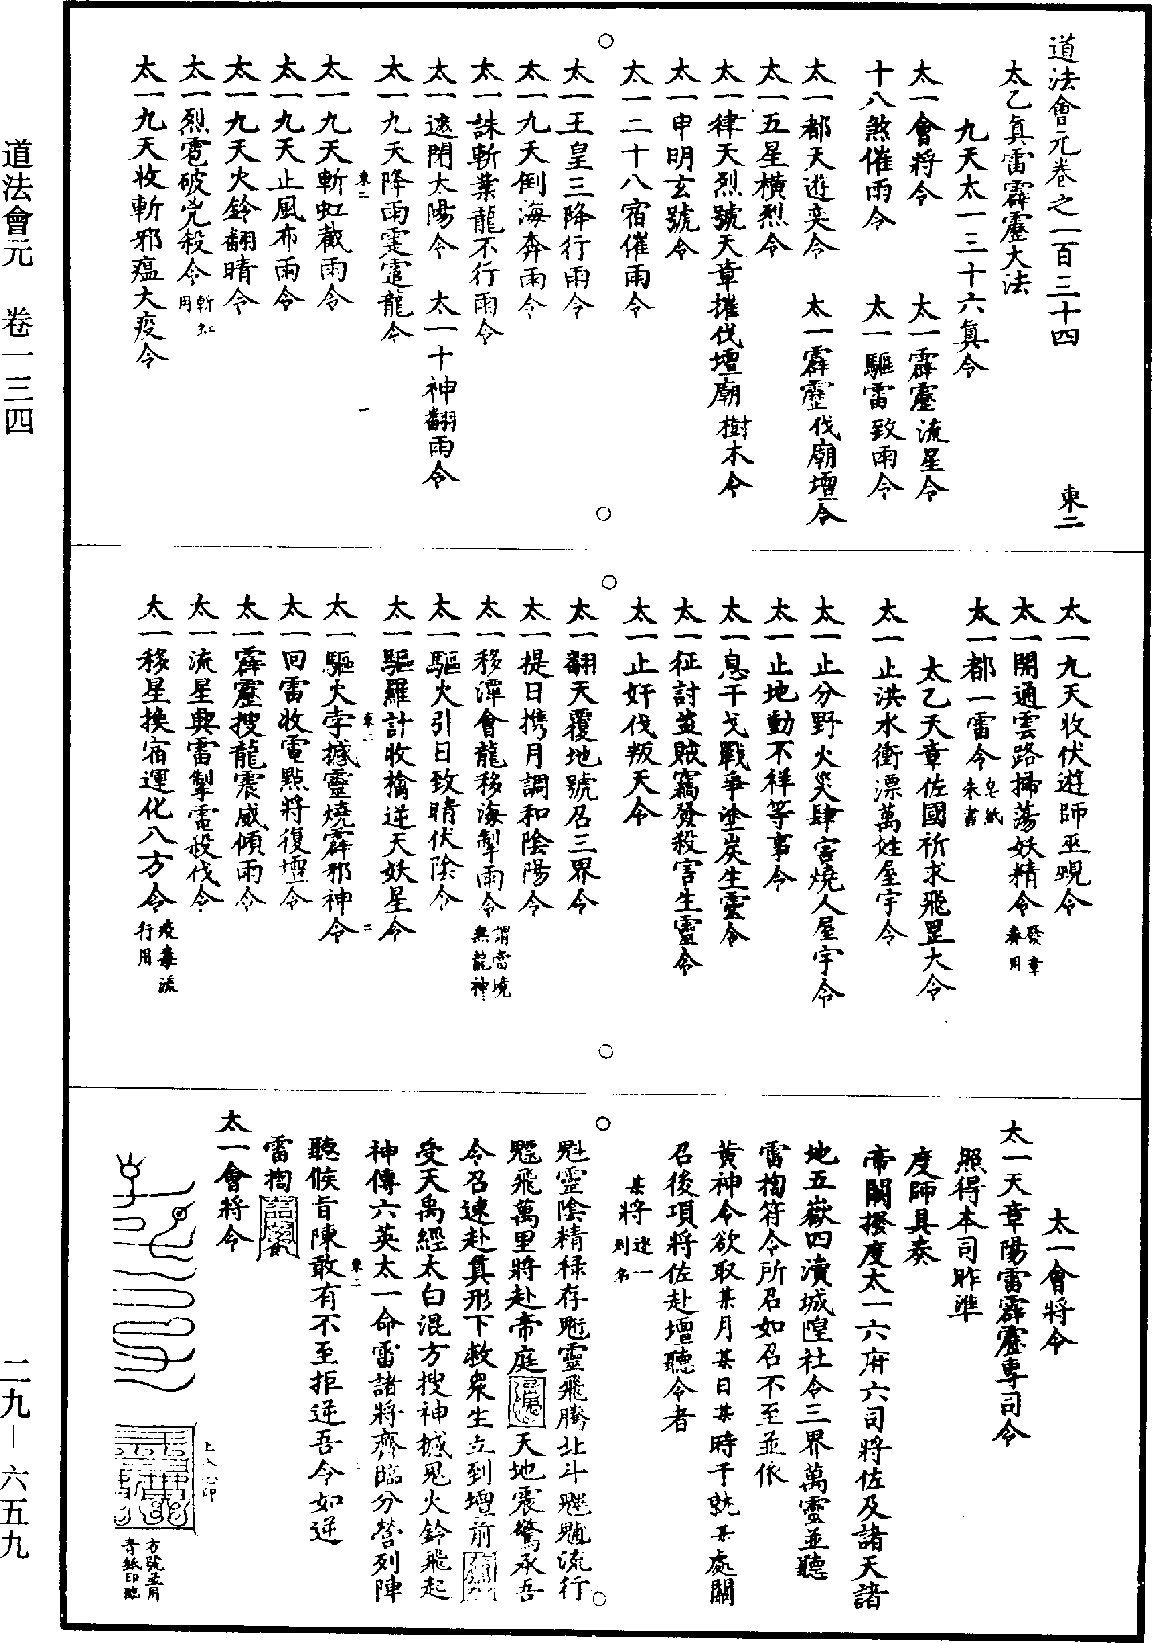 道法會元卷之一百三十四
東二
太乙真雷霹靂大法
九天太一三十六真令
太一會將令　太一霹靂流星令
十八煞催雨令　太一驅雷致雨令
太一都天遊奕令　太一霹靂伐廟壇令
太一五星橫烈令
太一律天烈號天章摧伐壇廟樹木令
太一申明玄號令
太一二十八宿催雨令
太一王皇三降行雨令
太一九天倒海奔雨令
太一誅斬業龍不行雨令
太一遮閉太陽令　太一十神翻雨令
太一九天降雨霆霳龍令
東二　一
太一九天斬虹截雨令
太一九天止風布雨令
太一九天火鈴翻晴令
太一烈雹破党殺令斬虹用
太一九天收斬邪瘟大疫令
太一九天收伏遊師巫覡令
太一開通雲路掃蕩妖精令發章奏用
太一都一雷令皂紙朱書
太乙天章佐國祈求飛罡大令
太一止洪水衝漂萬姓屋宇令
太一止分野火災肆害燒人屋宇令
太一止地動不祥等事令
太一息干戈戰爭塗炭生靈令
太一征討盜賊竊發殺害生靈令
太一止奸伐叛天令
太一翻天覆地號召三界令
太一提日携月調和陰陽令
太一移潭會龍移海掣雨令謂當境無龍神
太一驅火引日致晴伏陰令
太一驅羅計收擒逆天妖星令
東二　二
太一驅火孛撼靈燒霹邪神令
太一回雷收電點將復壇令
太一霹靂搜龍震威傾雨令
太一流星興雷掣電殺伐令
太一移星換宿運化八方令疫毒流行用
太一會將令
太一天章陽雷霹靂專司令
照得本司昨準
度師具奏
帝闕撥度太一六府六司將佐及諸天諸
地五嶽四瀆城隍社令三界萬靈並聽
雷掏符令所召如召不至並依
黃神令欲取某月某日某時于就某處關
召後項將佐赴壇聽令者
某將逐一列名
魁靈陰精祿存魓靈飛騰北斗魒魓流行
魒飛萬里將赴帝庭　天地震驚承吾
令召速赴真形下救眾生立到壇前
受天禹經太白混方搜神撼鬼火鈴飛起
神傳六英太一命雷諸將齊臨分營列陣
東二
聽候旨陳敢有不至拒逆吾令如逆
雷掏
太一會將令
道法會元　卷一三四
二九—六五九